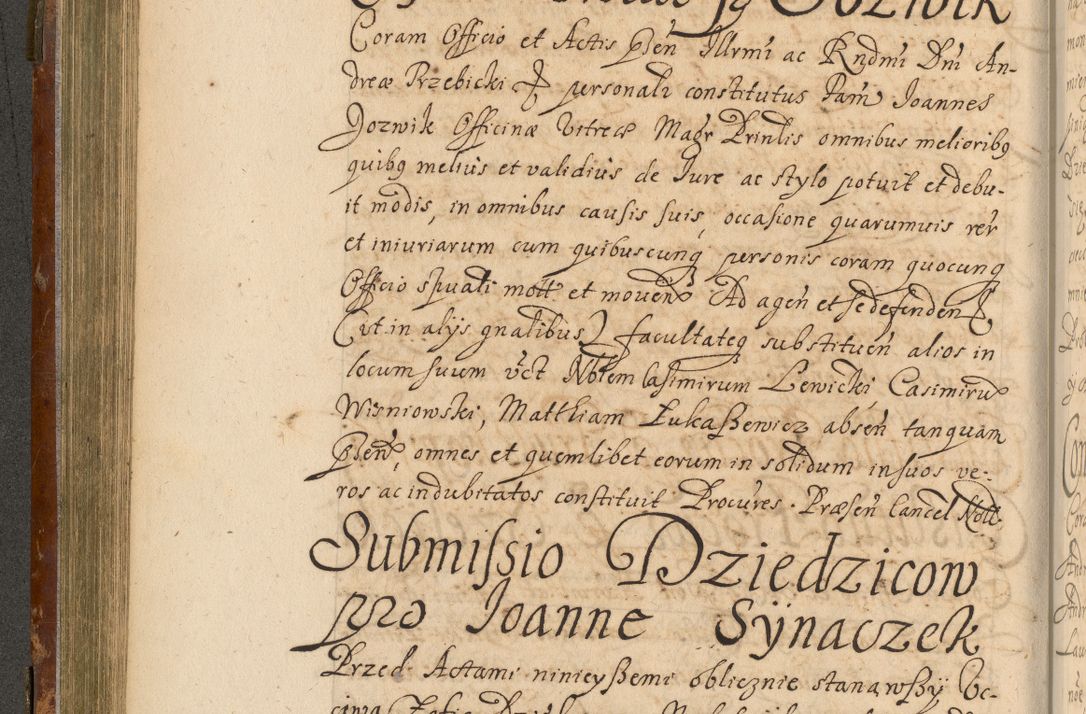 Jozwik
Coram Officio et Actis pñ Illrmi ac Rndmi Dni An-
dreæ Trzebicki personali constitutus Fam Joannes
Jozwik Officinæ Vitreæ Magr Prinlis omnibus melioribq
quibq melius et validius de Iure ac stylo potuit et debu-
it modis, in omnibus causis suis, occasione quarumuis rer
et iniuriarum cum quibuscunq personis coram quocunq
Officio spuali mott et mouen Ad agen et se defenden
(ut in alys gnalibus) facultateq substituen alios in
locum suum vct Notem Casimirum Lewicki, Casimiru
Wisniowski, Matthiam Lukaszewicz absen tanquam
pñ, omnes et quemlibet eorum in solidum in suos ve-
ros ac indubitatos constituit Procures. Præsen Cancel Nott
Submissio Dziedzicow
pro Joanne Sÿnaczek
Przed Actami ninieyszemi oblicznie stanąwszÿ Vc-
ciwa Zofia